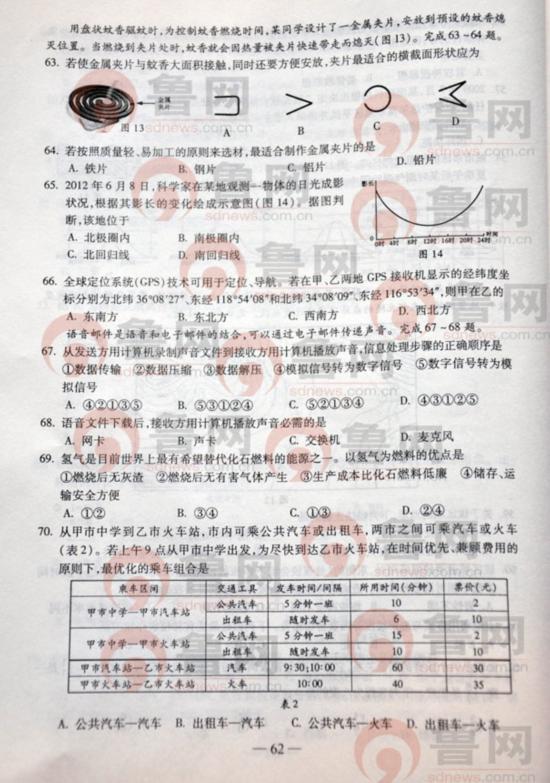 用盘状蚊香驱蚊时,为控制蚊香燃烧时间,某同学设计了一金属夹片,安放到预设的蚊香熄
灭位置。当燃烧到夹片处时,蚊香就会因热量被夹片快速带走而熄灭(图13)。完成63~64题。
63. 若使金属夹片与蚊香大面积接触,同时还要方便安放,夹片最适合的横截面形状应为
金属
夹片
图13
A B C D
64. 若按照质量轻、易加工的原则来选材,最适合制作金属夹片的是
A. 铁片 B. 钢片 C. 铝片 D. 铅片
65. 2012年6月8日,科学家在某地观测一物体的日光成影
状况,根据其影长的变化绘成示意图(图14)。据图判
断,该地位于
A. 北极圈内 B. 南极圈内
C. 北回归线 D. 南回归线
影长
0时 4时 8时 12时 16时 20时 24时
图14
66. 全球定位系统(GPS)技术可用于定位、导航。若在甲、乙两地GPS接收机显示的经纬度坐
标分别为北纬36°08′27″、东经118°54′08″和北纬34°08′09″、东经116°53′34″,则甲在乙的
A. 东南方 B. 东北方 C. 西南方 D. 西北方
语音邮件是语音和电子邮件的结合,可以通过电子邮件传递声音。完成67~68题。
67. 从发送方用计算机录制声音文件到接收方用计算机播放声音,信息处理步骤的正确顺序是
①数据传输 ②数据压缩 ③数据解压 ④模拟信号转为数字信号 ⑤数字信号转为模
拟信号
A. ④②①③⑤ B. ⑤③①②④ C. ⑤②①③④ D. ④③①②⑤
68. 语音文件下载后,接收方用计算机播放声音必需的是
A. 网卡 B. 声卡 C. 交换机 D. 麦克风
69. 氢气是目前世界上最有希望替代化石燃料的能源之一。以氢气为燃料的优点是
①燃烧后无灰渣 ②燃烧后无有害气体产生 ③生产成本比化石燃料低廉 ④储存、运
输安全方便
A. ①② B. ③④ C. ①③ D. ②④
70. 从甲市中学到乙市火车站,市内可乘公共汽车或出租车,两市之间可乘汽车或火车
(表2)。若上午9点从甲市中学出发,为尽快到达乙市火车站,在时间优先、兼顾费用的
原则下,最优化的乘车组合是
乘车区间 交通工具 发车时间/间隔 所用时间(分钟) 票价(元)
甲市中学—甲市汽车站 公共汽车 5分钟一班 10 2
出租车 随时发车 6 10
甲市中学—甲市火车站 公共汽车 5分钟一班 15 2
出租车 随时发车 10 10
甲市汽车站—乙市火车站 汽车 9:30;10:00 60 30
甲市火车站—乙市火车站 火车 10:00 40 35
表2
A. 公共汽车—汽车 B. 出租车—汽车 C. 公共汽车—火车 D. 出租车—火车
— 62 —
鲁网
sdnews.com.cn